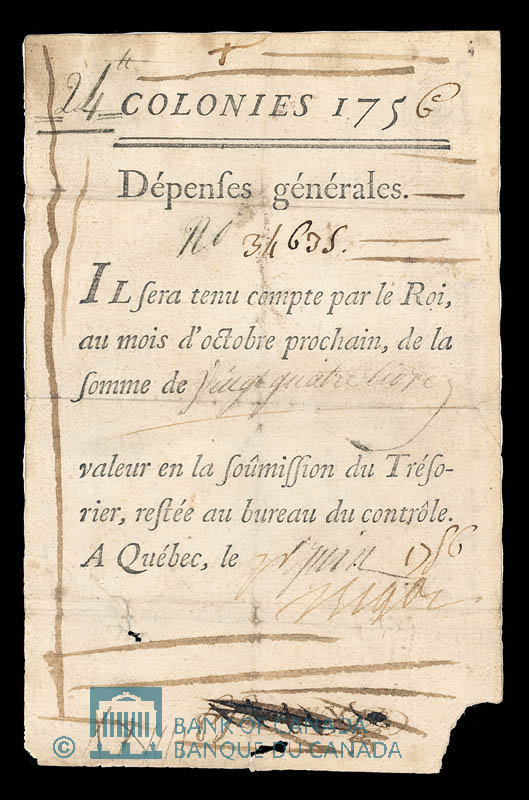 24 tt
COLONIES 1756
Dépenſes générales.
No 34635.
IL ſera tenu compte par le Roi,
au mois d'octobre prochain, de la
ſomme de vingt quatre livres
valeur en la ſoûmiſſion du Tréſo-
rier, reſtée au bureau du contrôle.
A Québec, le juin 1756
BANK OF CANADA
© BANQUE DU CANADA